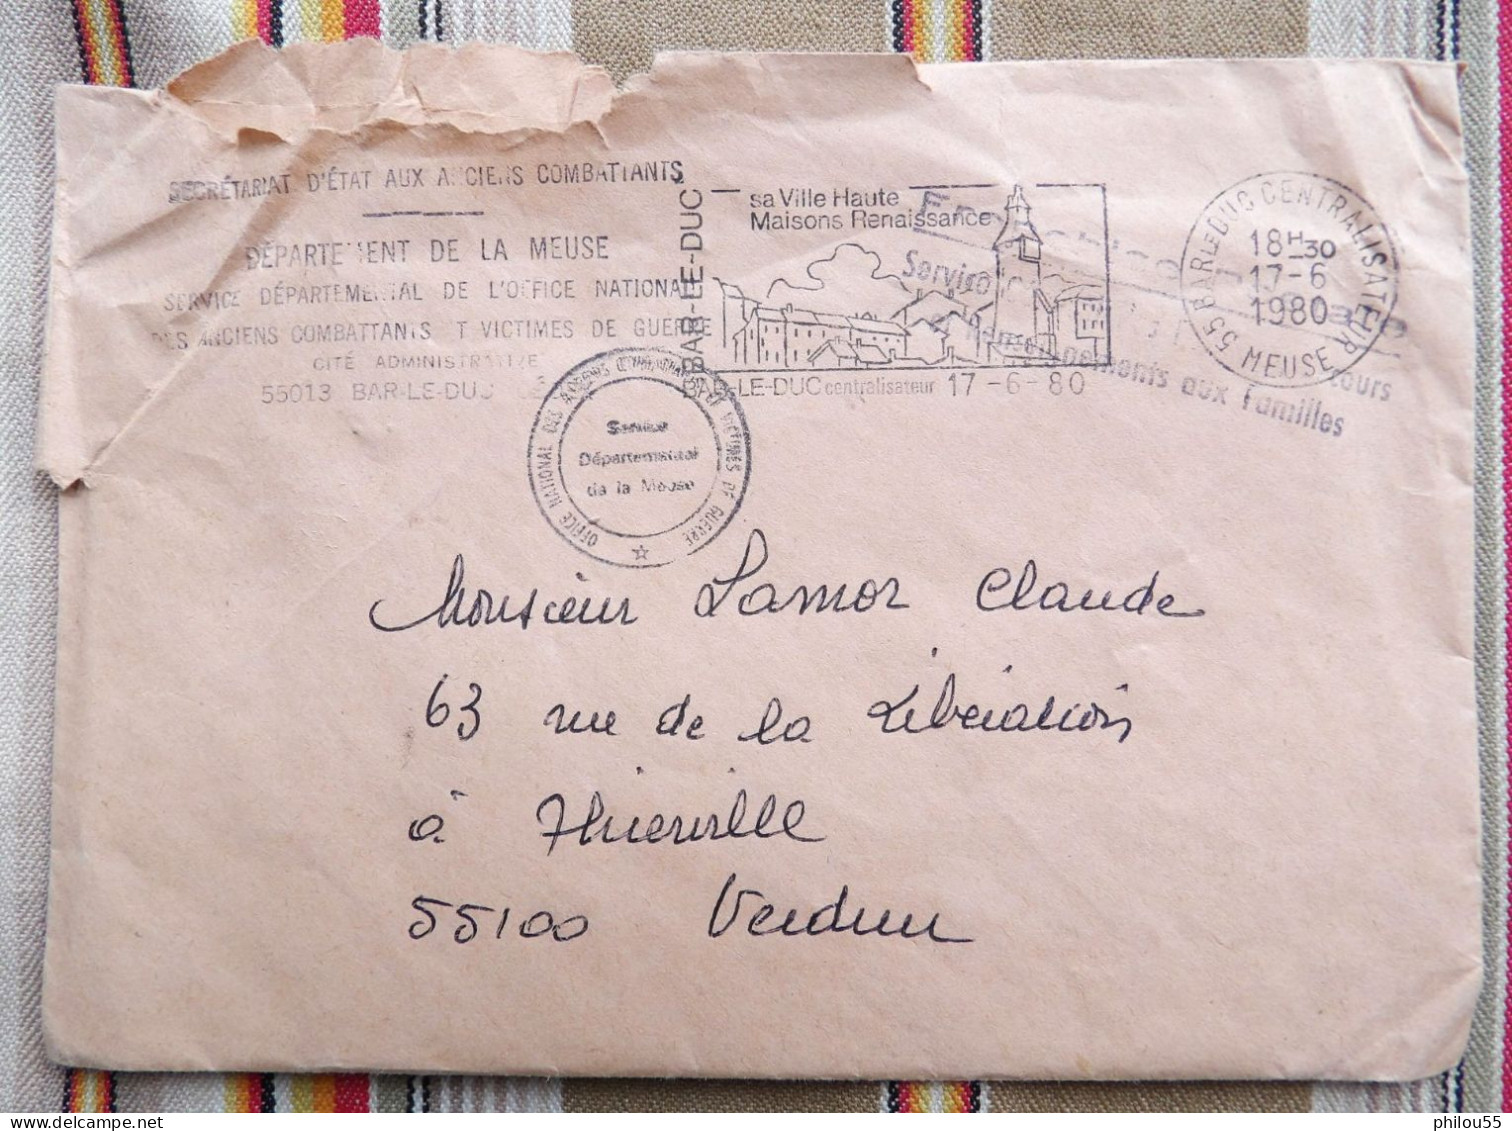 SECRÉTARIAT D'ÉTAT AUX ANCIENS COMBATTANTS
DÉPARTEMENT DE LA MEUSE
SERVICE DÉPARTEMENTAL DE L'OFFICE NATIONAL
DES ANCIENS COMBATTANTS ET VICTIMES DE GUERRE
CITÉ ADMINISTRATIVE
55013 BAR-LE-DUC
55 BAR-LE-DUC
sa Ville Haute
Maisons Renaissance
BAR-LE-DUC centralisateur 17-6-80
55 BAR LE DUC CENTRALISATEUR
18H30
17-6
1980
MEUSE
Service
et Renseignements aux Familles
OFFICE NATIONAL DES ANCIENS COMBATTANTS ET VICTIMES DE GUERRE
Service
Départemental
de la Meuse
Monsieur Lamor Claude
63 rue de la Libération
à Thierville
55100 Verdun
philou55